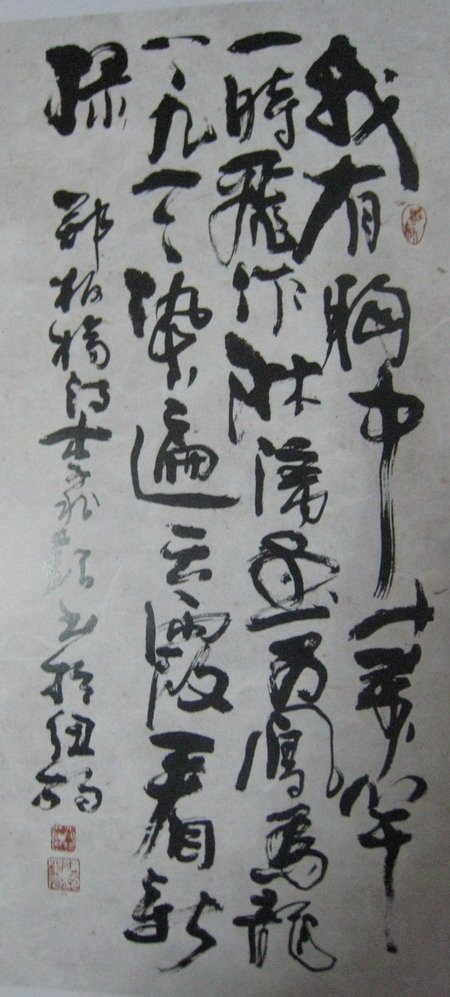 我有胸中十萬竿
一時飛作淋漓墨为鳳為龍
上九天染遍云霞看新
綠
鄭板橋詩 書於